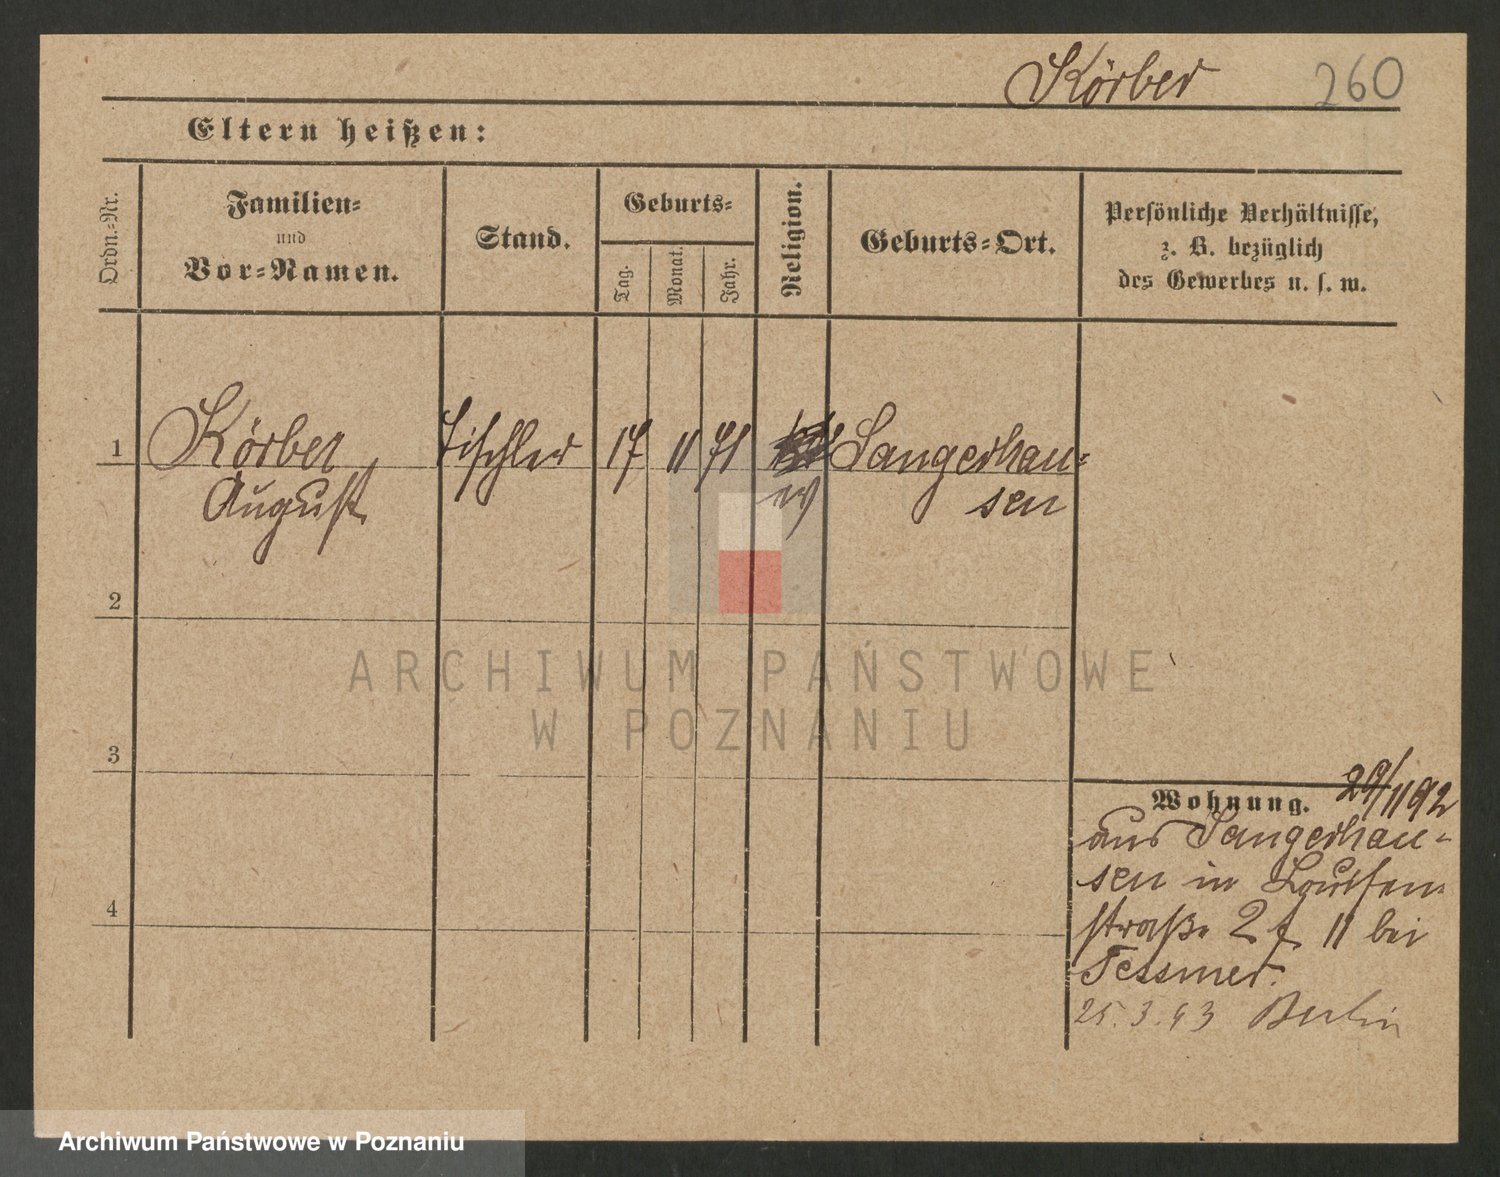 Körber 260
Eltern heißen:
Ordn.-Nr.
Familien-
und
Vor-Namen.
Stand.
Geburts-
Tag.
Monat.
Jahr.
Religion.
Geburts-Ort.
Persönliche Verhältnisse,
z. B. bezüglich
des Gewerbes u. s. w.
1 Körber Tischler 17 11 71 Sangerhau-
August ev sen
2
3
4
Wohnung. 29/11 92
aus Sangerhau-
sen in
straße 2 f. 11 bei
Tessmer.
25.3.93 Berlin
ARCHIWUM PAŃSTWOWE
W POZNANIU
Archiwum Państwowe w Poznaniu